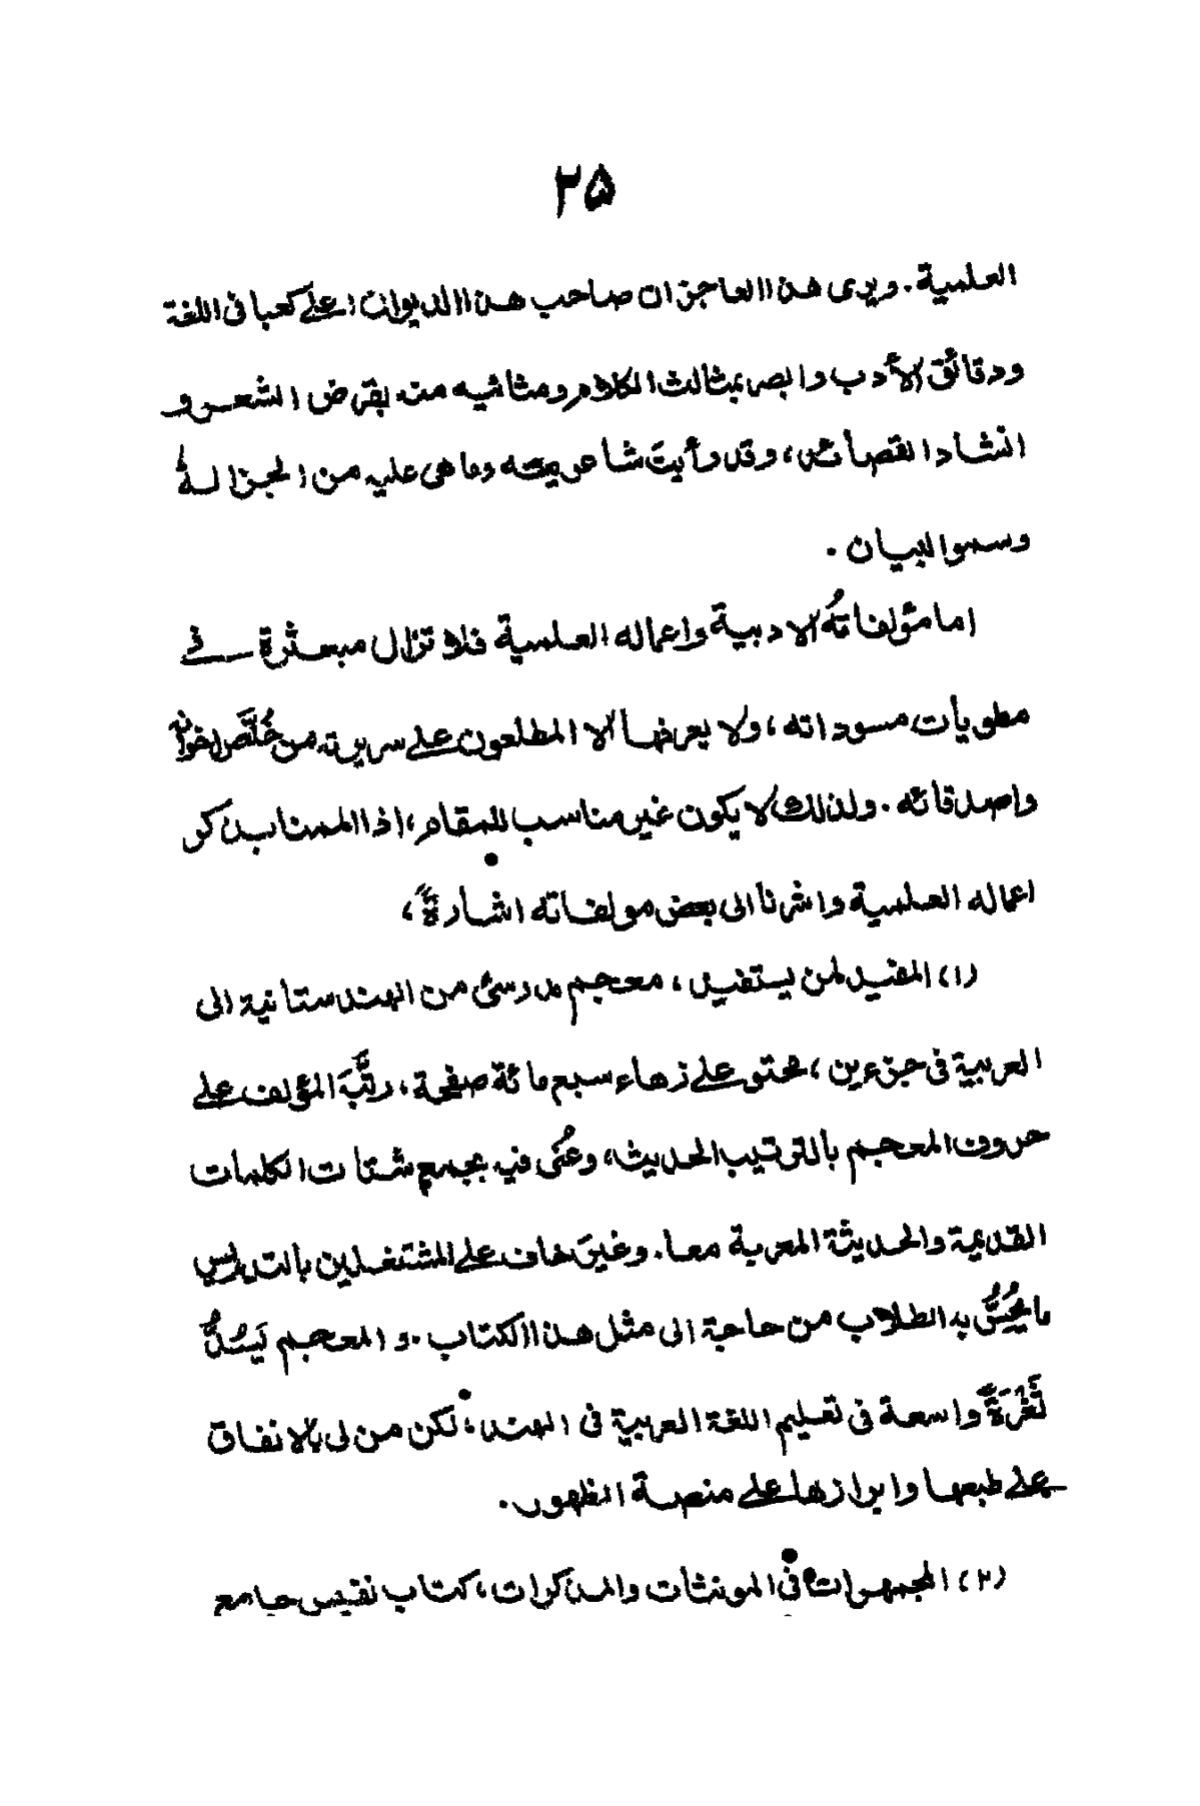 ۲۵
العلمية. ويرى هذا العاجز ان صاحب هذا الديوان اعلى كعبا فى اللغة
ودقائق الأدب وابصر بمثالث الكلام ومثانيه منه بقرض الشعر و
انشاد القصائد، وقد رأيت شاعريته وما هى عليه من الجزالة
وسمو البيان.
اما مؤلفاتُه الادبية واعماله العلمية فلا تزال مبعثرة فى
مطويات مسوداته، ولا يعرفها الا المطلعون على سريرته من خُلَّص اخوانه
واصدقائه. ولذلك لا يكون غير مناسب للمقام، اذا الممنا بذكر
اعماله العلمية واشرنا الى بعض مولفاته اشارةً،
(۱) المفيد لمن يستفيد، معجم مدرسىٌ من الهندستانية الى
العربية فى جزءين، محتو على زهاء سبع مائة صفحة، رتَّبَه المؤلف على
حروف المعجم بالترتيب الحديث، وعُنى فيه بجمع شتات الكلمات
القديمة والحديثة المعربة معا. وغيرَ خاف على المشتغلين بالتدريس
ما يُحِسُّ به الطلاب من حاجة الى مثل هذا الكتاب. والمعجم يَسُدُّ
ثَغْرَةً واسعة فى تعليم اللغة العربية فى الهند، لكن من لى بالانفاق
على طبعها وابرازها على منصة الظهور.
(۲) المجمهرات فى المونثات والمذكرات، كتاب نفيس جامع